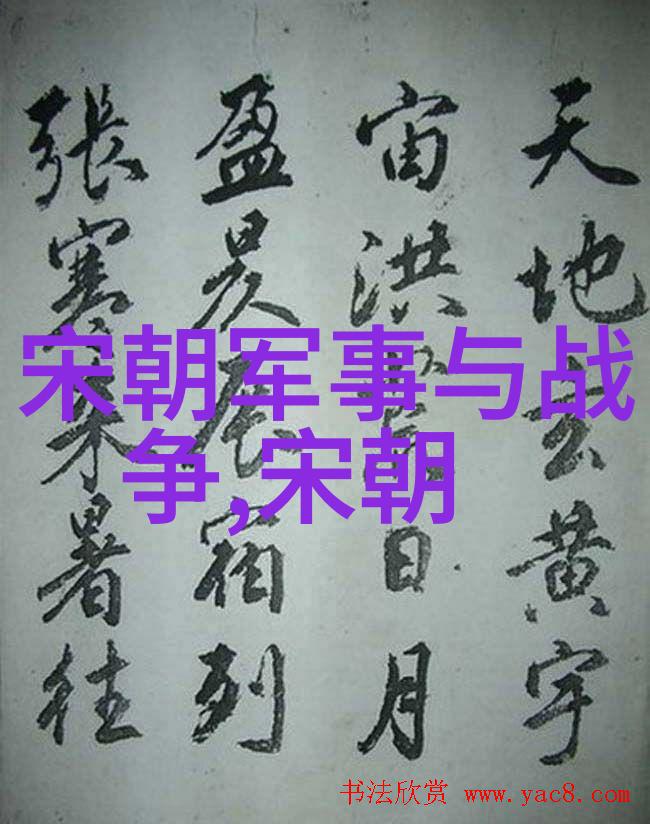 天地玄黄宇
宙洪荒日月
盈昃辰宿列
張寒来暑往
宋朝军事与战
争,宋朝
书法欣赏 www.yac8.com